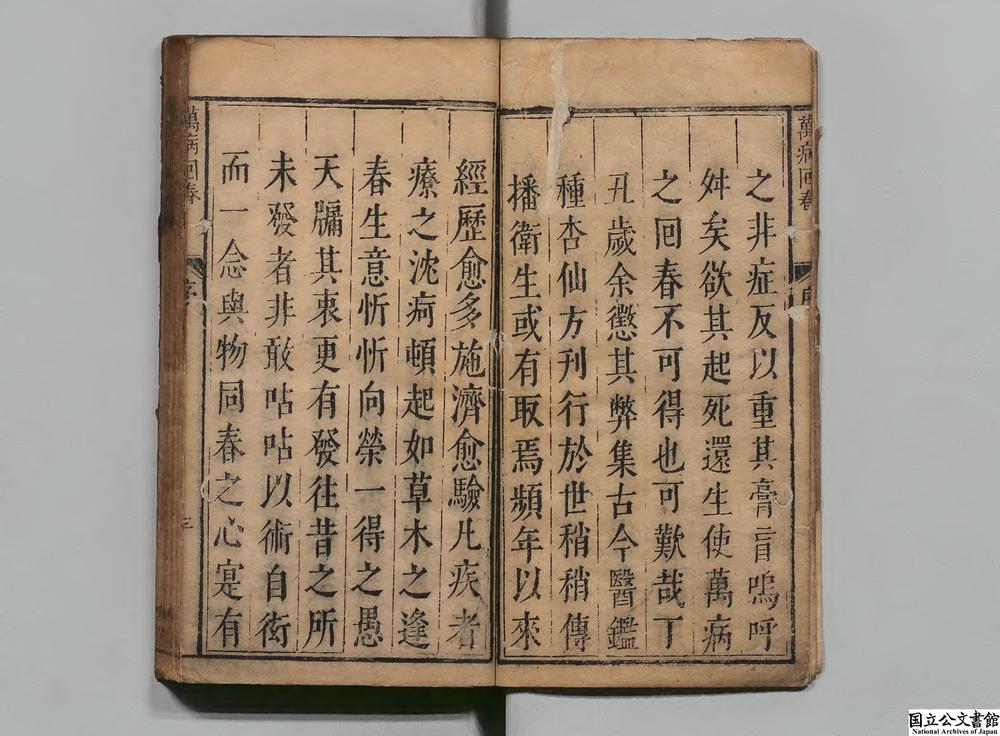 萬病回春
序
之非症反以重其膏肓嗚呼
舛矣欲其起死還生使萬病
之囘春不可得也可歎哉丁
丑歲余懲其弊集古今醫鑑
種杏仙方刊行於世稍稍傳
播衛生或有取焉頻年以來
經歷愈多施濟愈驗凡疾者
療之沈疴頓起如草木之逢
春生意忻忻向榮一得之愚
天牖其衷更有發徃昔之所
未發者非敢呫呫以術自衒
而一念與物同春之心寔有
萬病回春
序
三
国立公文書館
National Archives of Japan